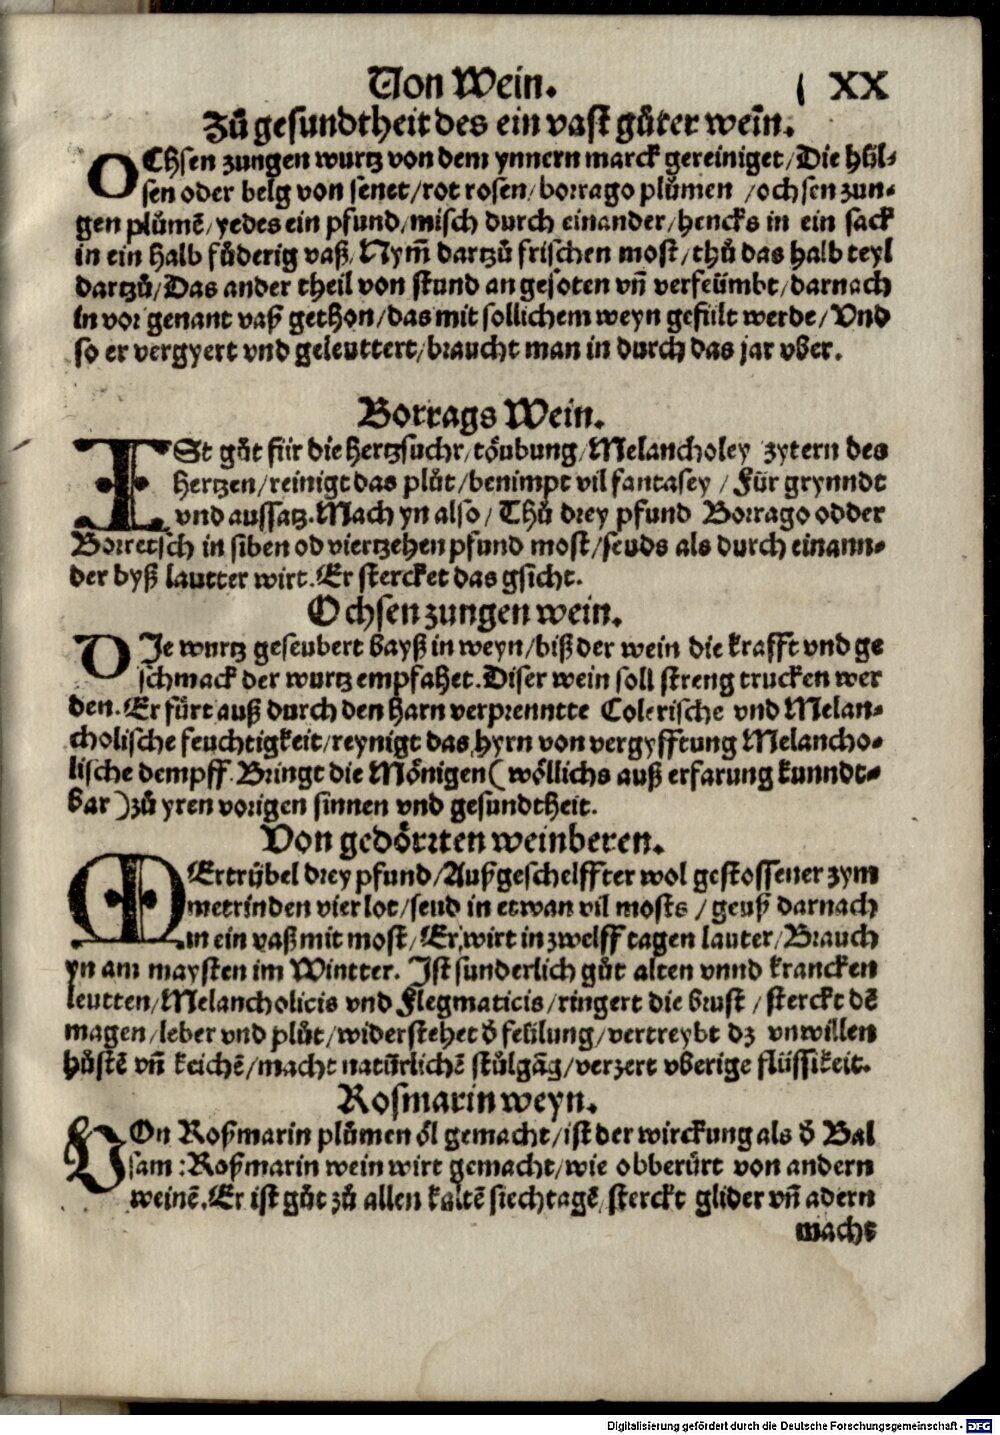 Von Wein. XX
Zů gesundtheit des ein vast gůter wein.
OChsen zungen wurtz von dem ynnern marck gereiniget/Die hül-
sen oder belg von senet/rot rosen/borrago plůmen /ochsen zun-
gen plůmē/yedes ein pfund/misch durch einander/hencks in ein sack
in ein halb fůderig vaß/Nym̄ dartzů frischen most/thů das halb teyl
dartzů/Das ander theil von stund an gesoten vn̄ verfeümbt/darnach
in vor genant vaß gethon/das mit sollichem weyn gefült werde/Vnd
so er vergyert vnd geleuttert/braucht man in durch das jar vber.
Borrags Wein.
ISt gůt für die hertzsucht/töubung/Melancholey zytern des
hertzen/reinigt das plůt/benimpt vil fantasey /Für grynndt
vnd aussatz.Mach yn also/Thů drey pfund Borrago odder
Borretsch in siben od viertzehen pfund most/seuds als durch einann-
der byß lautter wirt.Er stercket das gsicht.
Ochsen zungen wein.
DJe wurtz geseubert bayß in weyn/biß der wein die krafft vnd ge
schmack der wurtz empfahet.Diser wein soll streng trucken wer
den.Er fürt auß durch den harn verprenntte Colerische vnd Melan-
cholische feuchtigkeit/reynigt das hyrn von vergyfftung Melancho-
lische dempff.Bringt die Mönigen(wöllichs auß erfarung kunndt-
bar)zů yren vorigen sinnen vnd gesundtheit.
Von gedörrten weinberen.
MErtrübel drey pfund/Außgeschelffter wol gestossener zym
metrinden vier lot/seud in etwan vil mosts /geuß darnach
in ein vaß mit most/Er wirt in zwelff tagen lauter/Brauch
yn am maysten im Wintter. Jst sunderlich gůt alten vnnd krancken
leutten/Melancholicis vnd Flegmaticis/ringert die brust /sterckt dē
magen/leber vnd plůt/widerstehet d̄ feülung/vertreybt dz vnwillen
hůstē vn̄ keichē/macht natürlichē stůlgāg/verzert vberige flüssikeit.
Rosmarin weyn.
VOn Roßmarin plůmen öl gemacht/ist der wirckung als d̄ Bal
sam:Roßmarin wein wirt gemacht/wie obberürt von andern
weinē.Er ist gůt zů allen kaltē siechtagē/sterckt glider vn̄ adern
macht
Digitalisierung gefördert durch die Deutsche Forschungsgemeinschaft - DFG